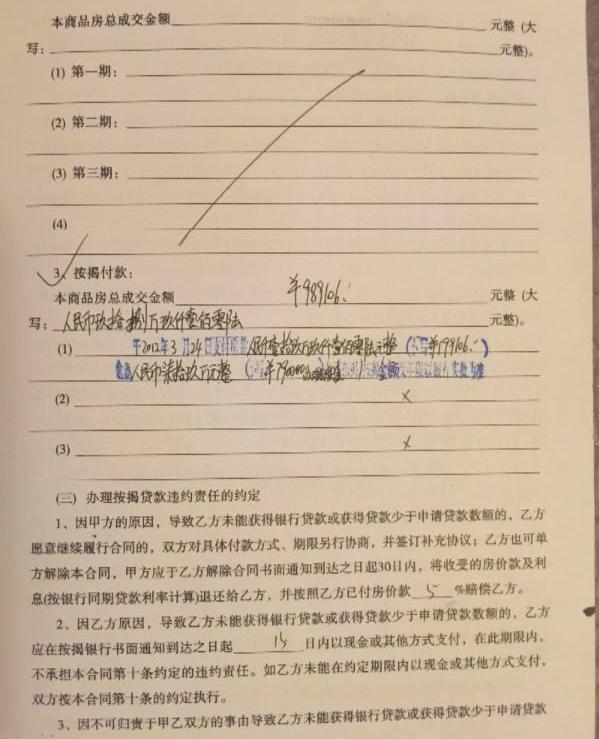 本商品房总成交金额 元整 (大
写: 元整)。
(1) 第一期:
(2) 第二期:
(3) 第三期:
(4)
3、按揭付款:
本商品房总成交金额 ¥989106. 元整 (大
写: 人民币玖拾捌万玖仟壹佰零陆 元整)。
(1) 于2012年3月24日支付 人民币壹拾玖万玖仟壹佰零陆元整 (小写¥199106.)
人民币柒拾玖万元整 ¥790000 金额
(2) ×
(3) ×
(三) 办理按揭贷款违约责任的约定
1、因甲方的原因，导致乙方未能获得银行贷款或获得贷款少于申请贷款数额的，乙方
愿意继续履行合同的，双方对具体付款方式、期限另行协商，并签订补充协议；乙方也可单
方解除本合同，甲方应于乙方解除合同书面通知到达之日起30日内，将收受的房价款及利
息(按银行同期贷款利率计算)退还给乙方，并按照乙方已付房价款 5 %赔偿乙方。
2、因乙方原因，导致乙方未能获得银行贷款或获得贷款少于申请贷款数额的，乙方
应在按揭银行书面通知到达之日起 15 日内以现金或其他方式支付，在此期限内，
不承担本合同第十条约定的违约责任。如乙方未能在约定期限内以现金或其他方式支付，
双方按本合同第十条的约定执行。
3、因不可归责于甲乙双方的事由导致乙方未能获得银行贷款或获得贷款少于申请贷款